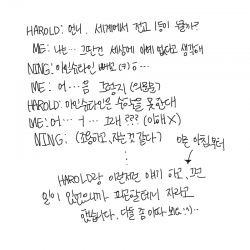 HAROLD: 언니. 세계에서 전교 1등이 뭘까?
ME: 나는... 그딴건 세상에 아예 없다고 생각해
NING: 아인슈타인 빼고 (ㅋ) ㅎ...
ME: 어...음 그렇지 (의문중)
HAROLD: 아인슈타인은 수학을 못한대
ME: 어-- ㅓ... 그래??? (이해X)
NING: (조용하고, 자는 것 같다)
이른 아침부터
HAROLD랑 이런저런 얘기 하고, 그런
일이 있었으니까 피곤할테니 자라고
했습니다. 다들 좀 이따 봐요 :^)..